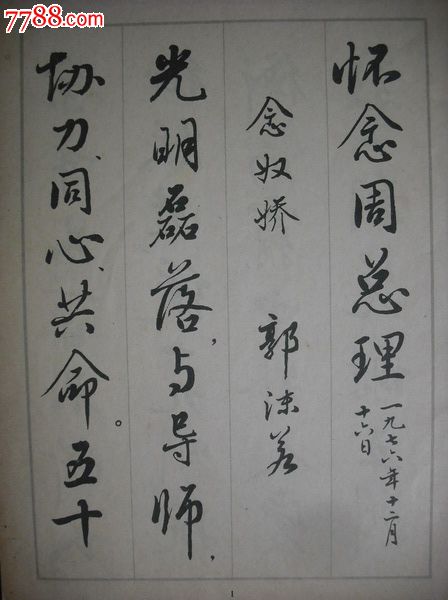 7788.com
怀念周总理 一九七六年十二月
十六日
念奴娇 郭沫若
光明磊落，与导师，
协力、同心、共命。五十
1